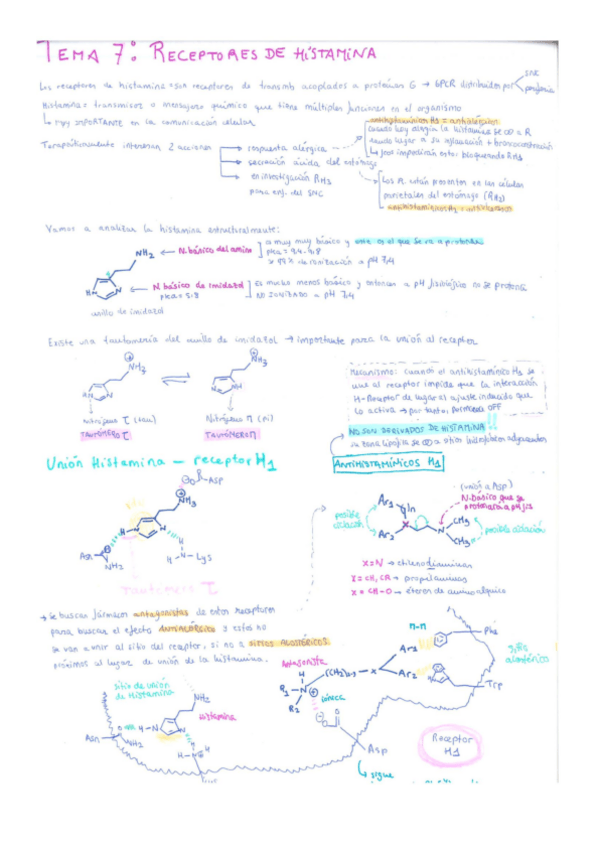 TEMA 7: RECEPTORES DE HISTAMINA
Los receptores de histamina son receptores de transmb acoplados a proteínas G → GPCR distribuidos por
SNC
periferia
Histamina = transmisor o mensajero químico que tiene múltiples funciones en el organismo
↳ muy IMPORTANTE en la comunicación celular
Terapéuticamente interesan 2 acciones
respuesta alérgica
secreción ácida del estómago
en investigación RH3
para enf. del SNC
antihistamínicos H1 = antialérgicos
cuando hay alergia la histamina se ∞ a R
dando lugar a inflamación + broncoconstricción
↳ fcos impedirán esto: bloqueando RH1
Los R están presentes en las células
parietales del estómago (RH2)
Vamos a analizar la histamina estructuralmente:
NH2 ← N básico del amino
a muy muy básico y este es el que se va a protonar
pka = 9.4-9.8
> 99% de ionización a pH 7,4
HN N ← N básico de imidazol
pka = 5.8
Es mucho menos básico y entonces a pH fisiológico no se protona
NO IONIZADO a pH 7,4
anillo de imidazol
Existe una tautomería del anillo de imidazol → importante para la unión al receptor
NH3 NH3
Nitrógeno τ (tau)
TAUTÓMERO τ
Nitrógeno π (pi)
TAUTÓMERO π
Mecanismo: cuando el antihistamínico H1 se
une al receptor impide que la interacción
H-Receptor de lugar al ajuste inducido que
lo activa → por tanto, permanece OFF
NO SON DERIVADOS DE HISTAMINA
su zona lipófila se ∞ a otros hidrófobos adyacentes
Unión Histamina – receptor H1
ANTIHISTAMÍNICOS H1
Asp
NH3
Asn
H-N-Lys
Tautómero τ
(unión a Asp)
N-básico que se
protonará a pH fis
posible
Ar1
Ar2
N
CH3
CH3
posible ciclación
X=N → etilenodiaminas
X = CH, CR → propilaminas
X = CH-O → éteres de aminoalquilo
→ Se buscan fármacos antagonistas de estos receptores
para buscar el efecto ANTIALÉRGICO y estos no
se van a unir al sitio del receptor, si no a SITIOS ALOSTÉRICOS
próximos al lugar de unión de la histamina.
Antagonista
R1-N-(CH2)n-X
H
R2
Ar1
Ar2
π-π
Phe
Trp
sitio
alostérico
iónica
Asp
↳ sigue
sitio de unión
de histamina
NH3
Histamina
Asn
NH2
Receptor
H1